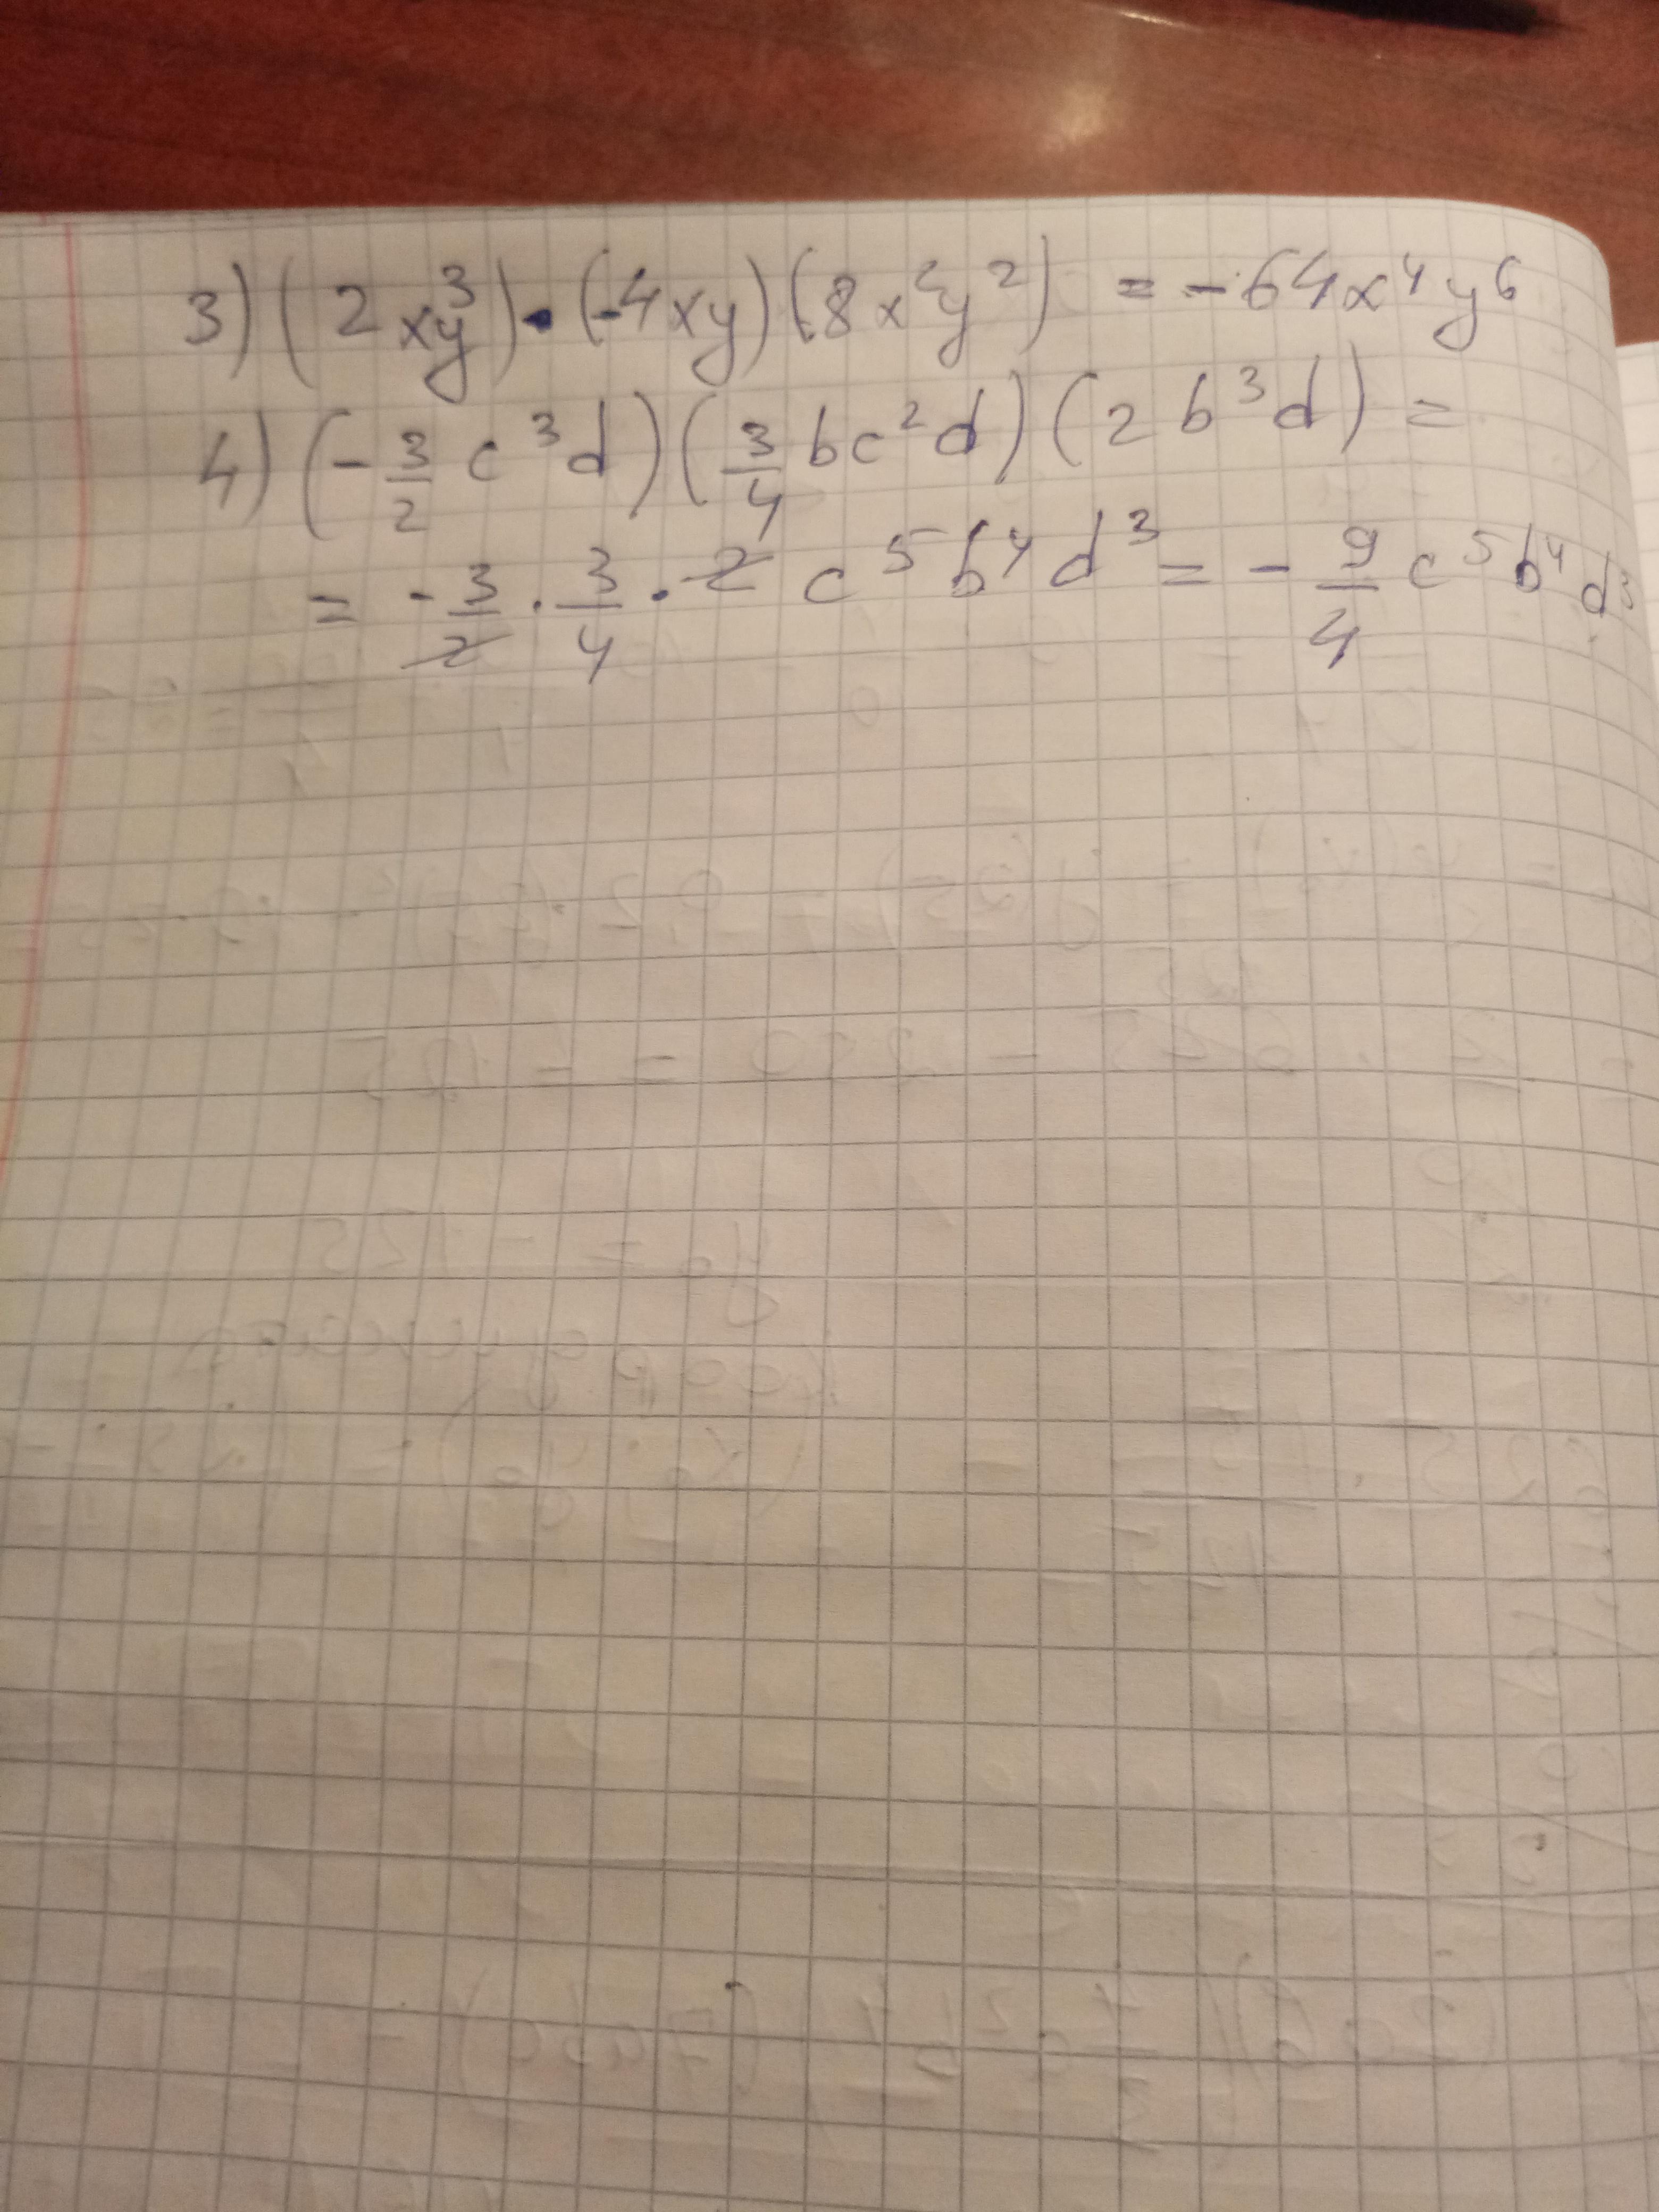 3) (2xy³)·(-4xy)(8x²y²) = -64x⁴y⁶
4) (-3/2 c³d)(3/4 bc²d)(2b³d) =
= -3/2 · 3/4 · 2 c⁵b⁴d³ = -9/4 c⁵b⁴d³